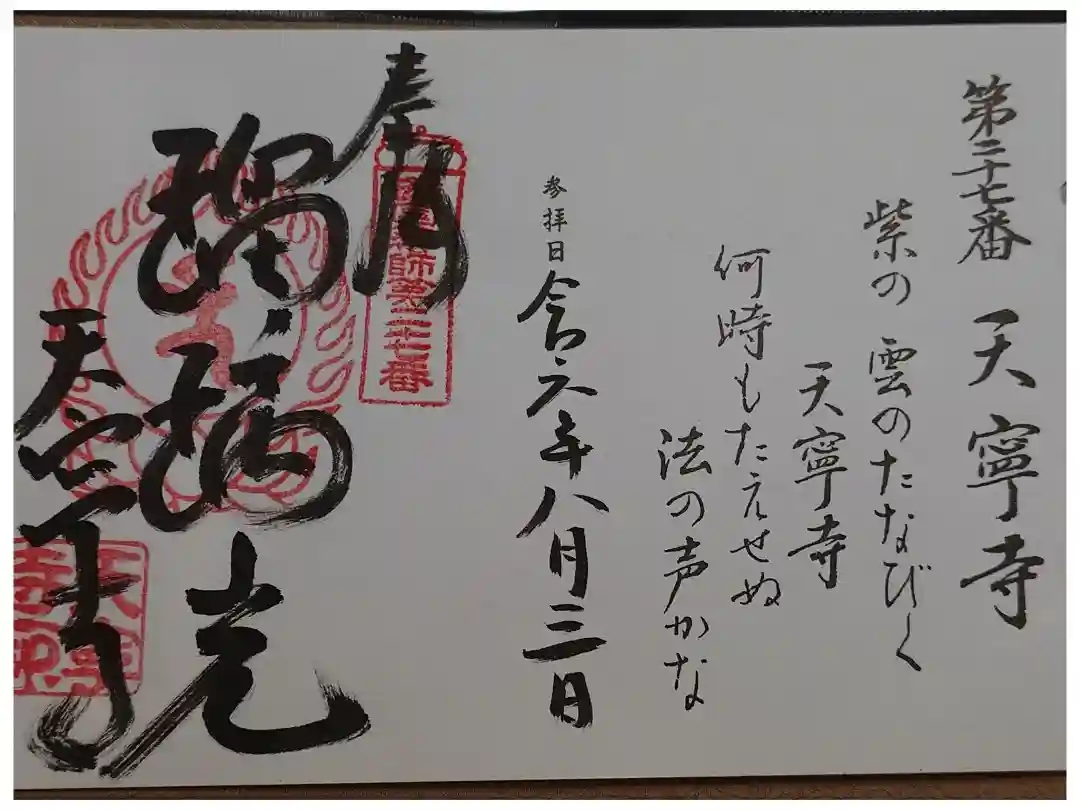 第二十七番 天寧寺
紫の 雲のたなびく
天寧寺
何時もたえせぬ
法の声かな
参拝日 令六年八月三日
奉
師第二十七番
瑠璃光
天寧寺